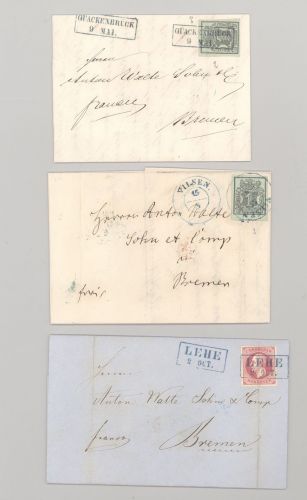 QUACKENBRÜCK
9 MAI.
QUACKENBRÜCK
9 MAI.
Herren
Anton Walte Sohn & C
franco
Bremen
VILSEN
Herren Anton Walte
Sohn et Comp
Bremen
frei
LEHE
2 OCT.
LEHE
OCT.
Herren
Anton Walte Sohn & Comp
franco
Bremen